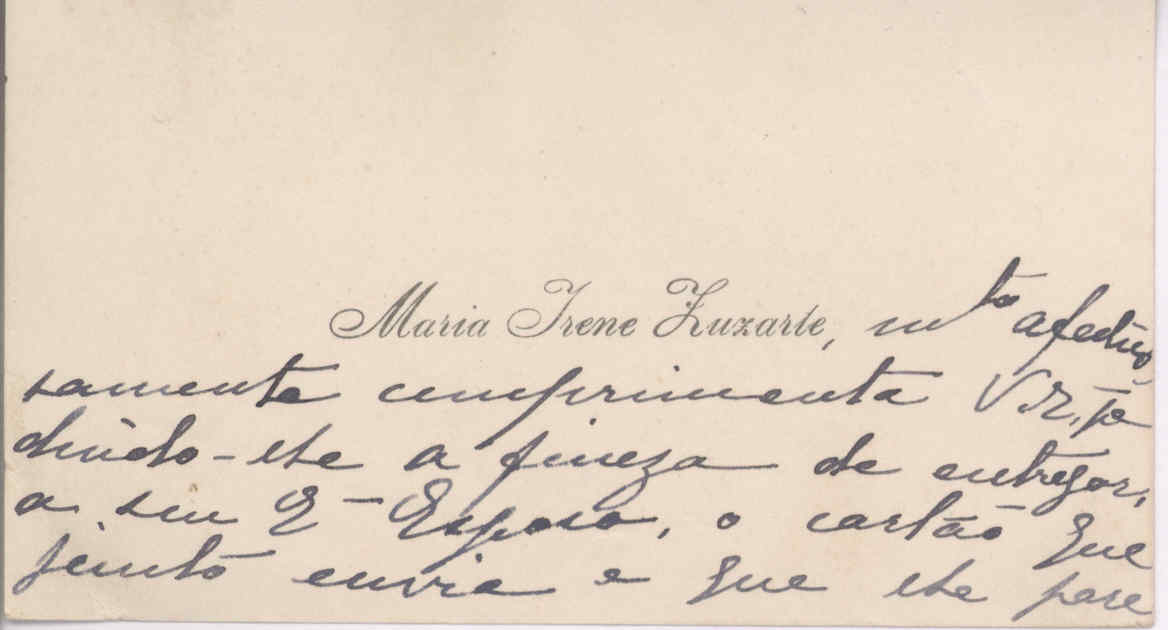 Maria Irene Zuzarte, mto afectuo
samente cumprimenta V. Ex., pe
dindo-lhe a fineza de entregar,
a seu Esposo, o cartão que
junto envia e que lhe pare